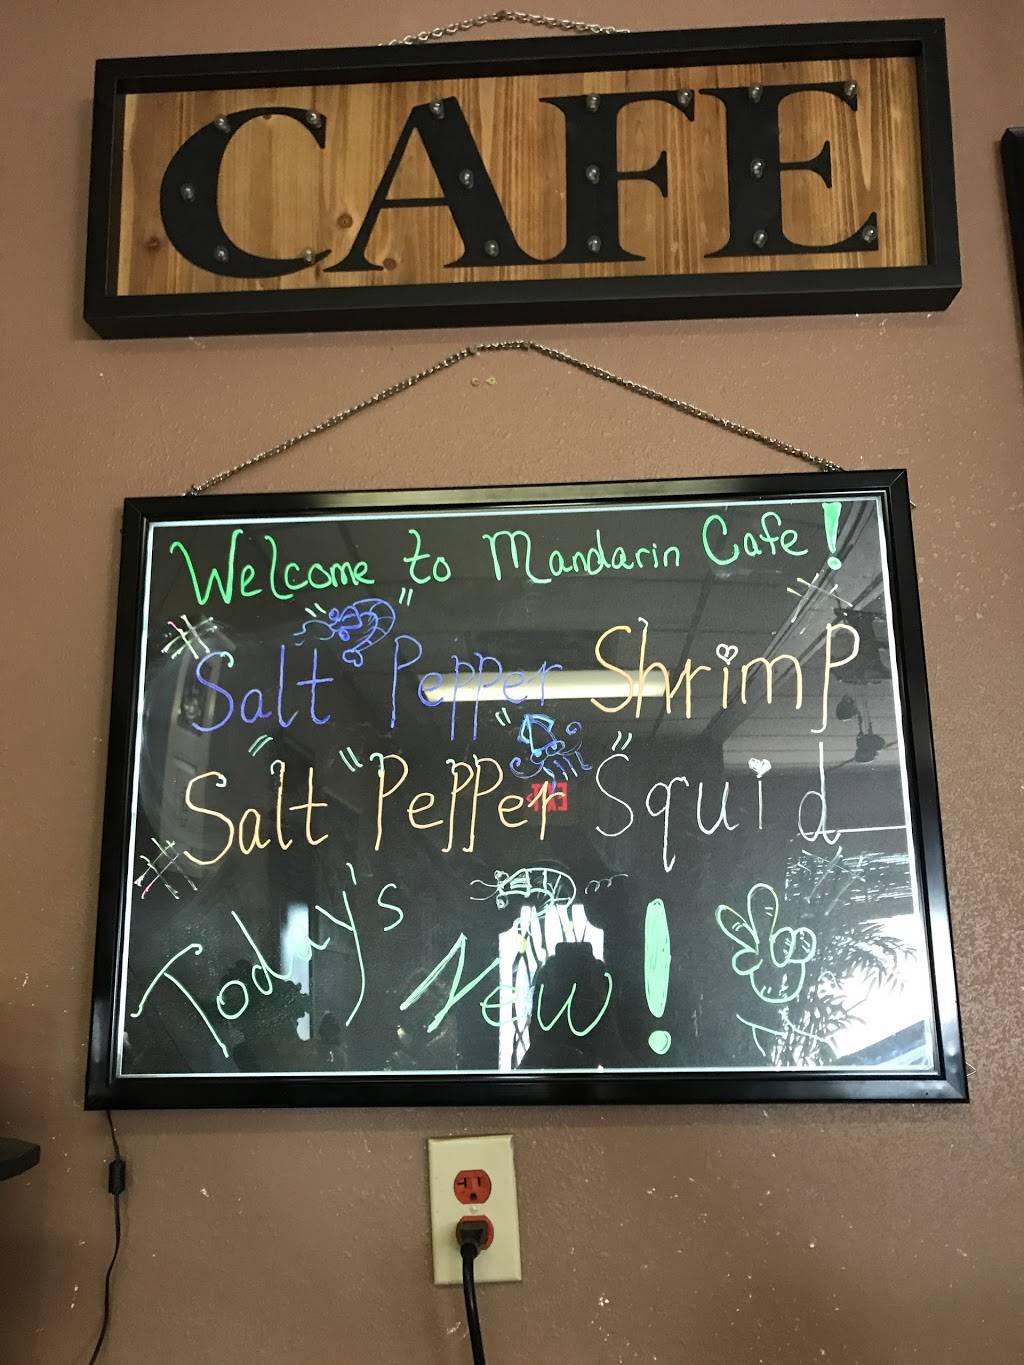 CAFE
Welcome to Mandarin Cafe!
Salt Pepper Shrimp
Salt Pepper Squid
Today's New!